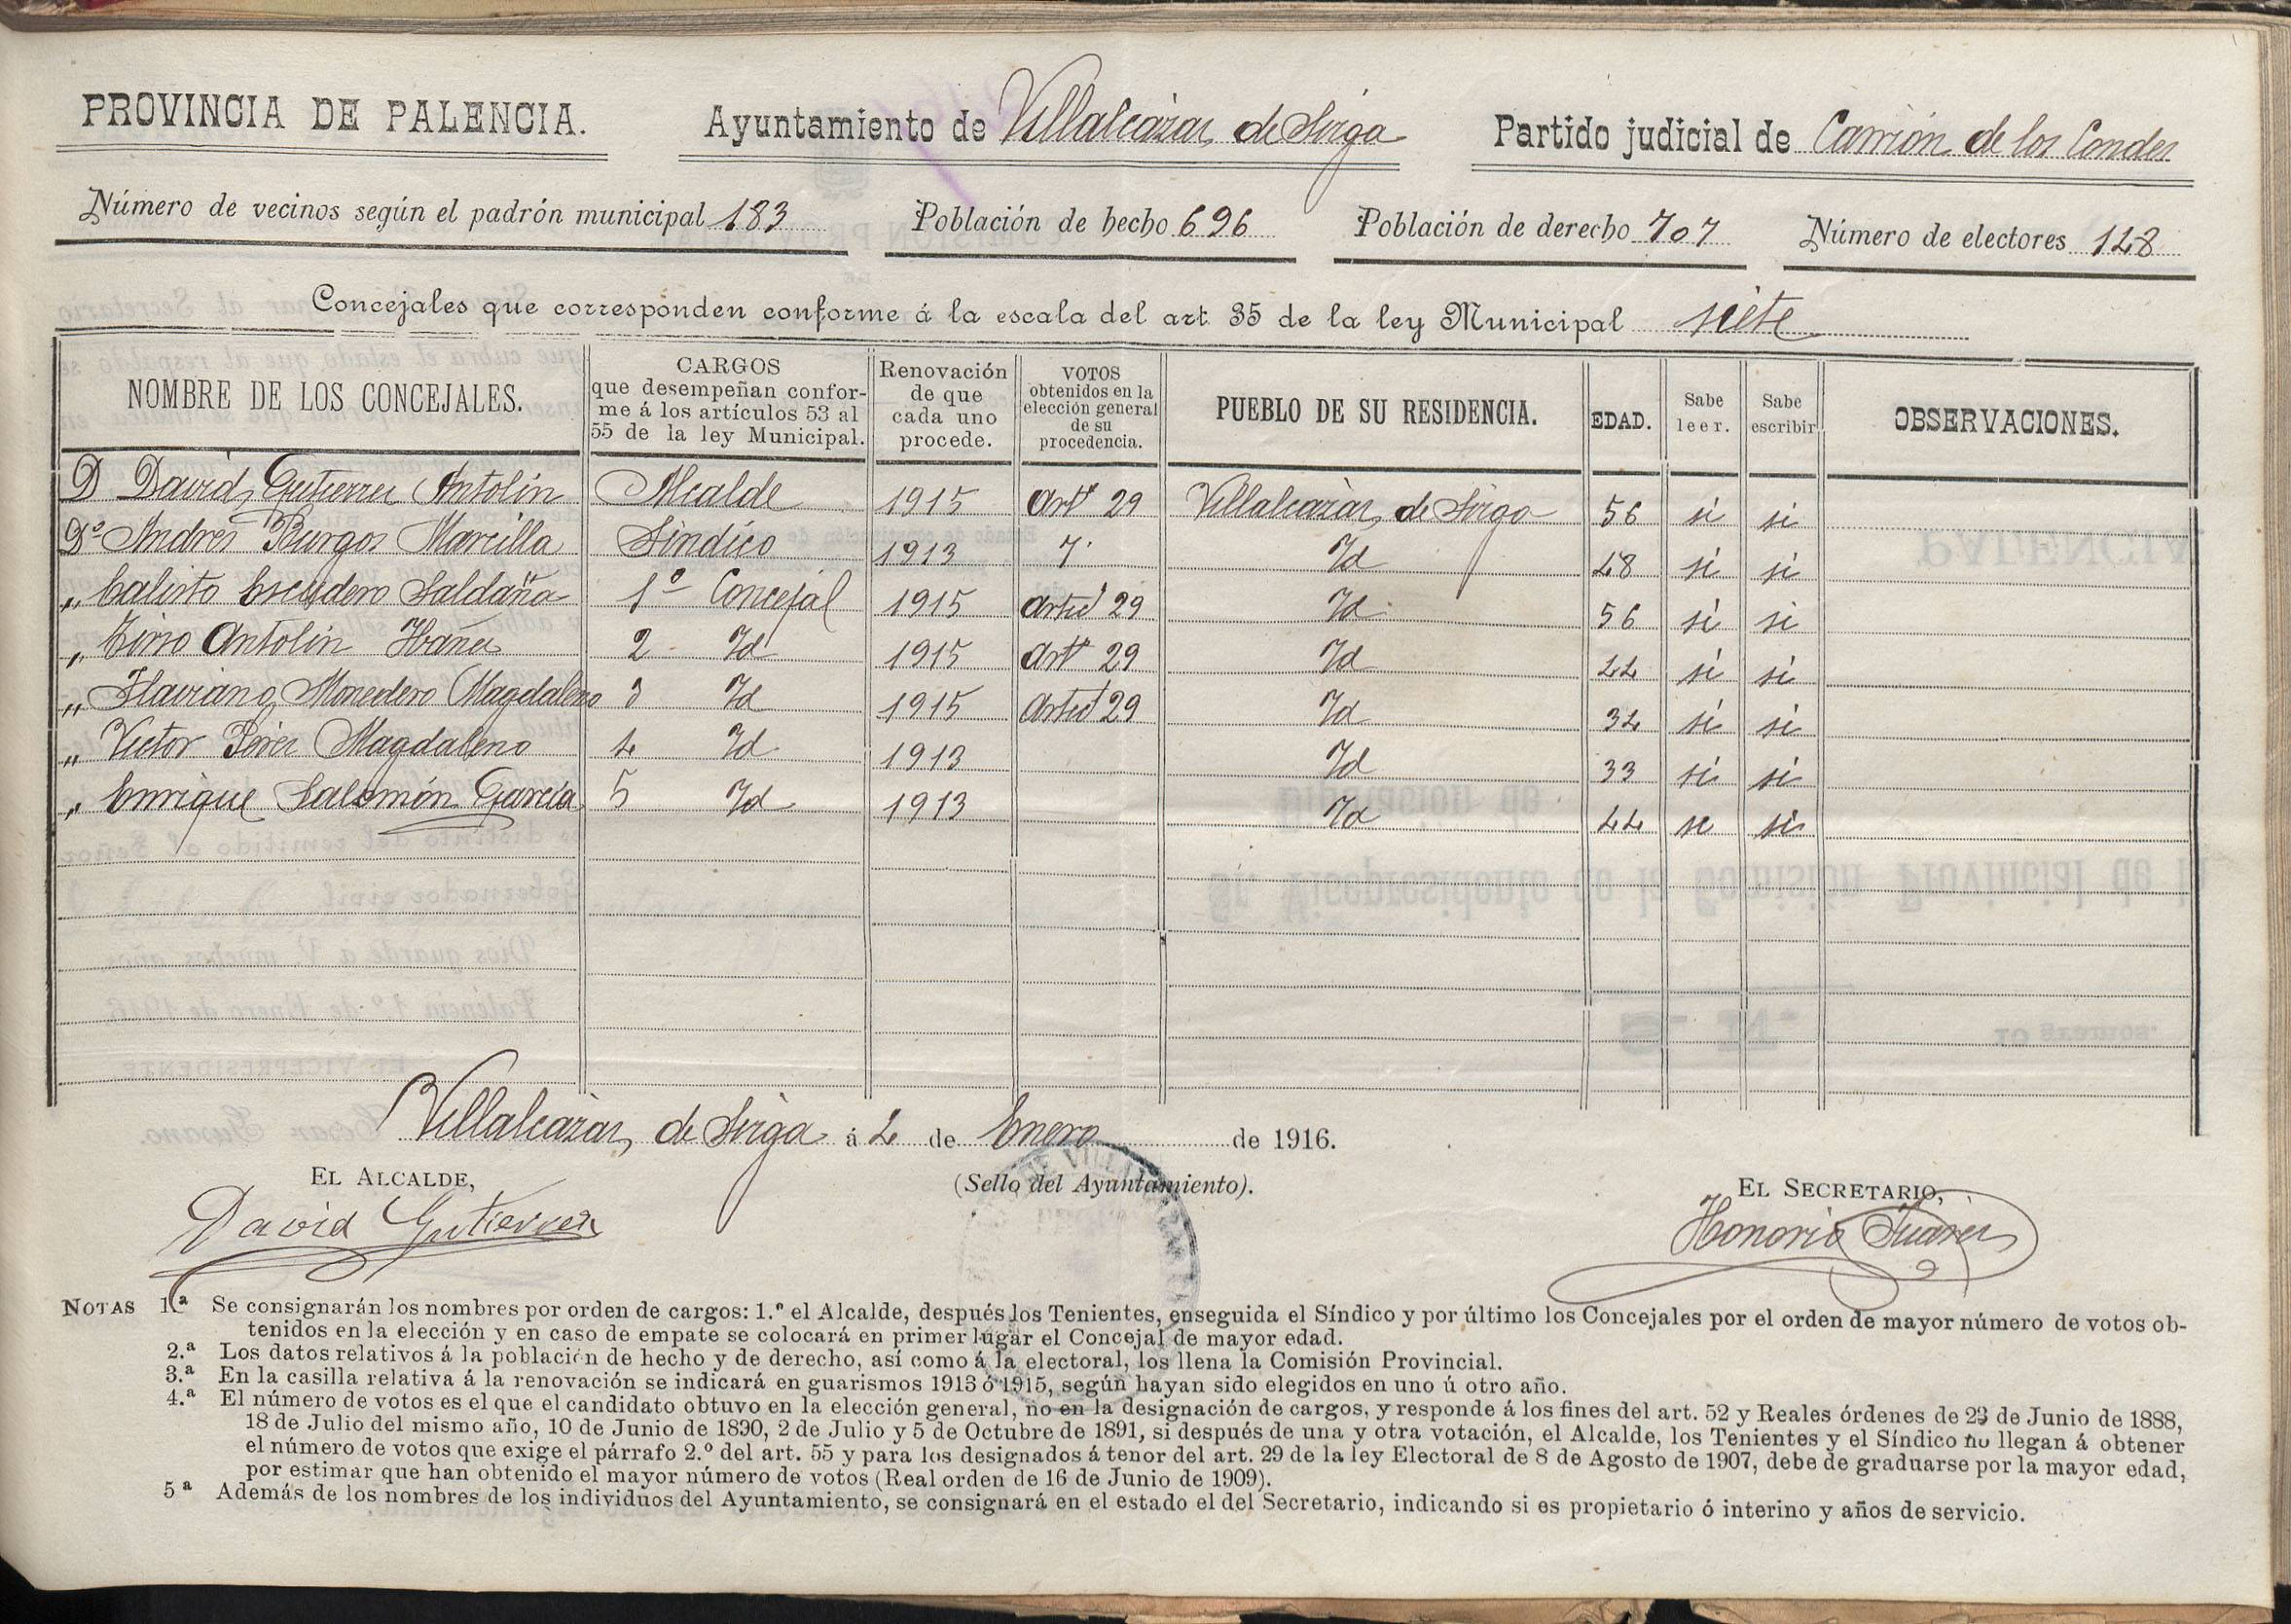 PROVINCIA DE PALENCIA. Ayuntamiento de Villalcázar de Sirga Partido judicial de Carrión de los Condes
Número de vecinos según el padrón municipal 183 Población de hecho 696 Población de derecho 707 Número de electores 148
Concejales que corresponden conforme á la escala del art. 35 de la ley Municipal siete
NOMBRE DE LOS CONCEJALES. CARGOS que desempeñan conforme á los artículos 53 al 55 de la ley Municipal. Renovación de que cada uno procede. VOTOS obtenidos en la elección general de su procedencia. PUEBLO DE SU RESIDENCIA. EDAD. Sabe leer. Sabe escribir OBSERVACIONES.
D David Gutierrez Antolin Alcalde 1915 Artº 29 Villalcázar de Sirga 56 si si
Dº Andrés Burgos Marcilla Sindico 1913 7 Id 48 si si
„ Calisto Escudero Saldaña 1º Concejal 1915 Articl 29 Id 56 si si
„ Tirso Antolin Ibañez 2 Id 1915 Artº 29 Id 44 si si
„ Flaviano Monedero Magdaleno 3 Id 1915 Articl 29 Id 34 si si
„ Victor Pérez Magdaleno 4 Id 1913 Id 33 si si
„ Enrique Salomón García 5 Id 1913 Id 44 si si
Villalcázar de Sirga á 2 de Enero de 1916.
EL ALCALDE, (Sello del Ayuntamiento). EL SECRETARIO,
David Gutierrez Honorio Juárez
NOTAS 1.ª Se consignarán los nombres por orden de cargos: 1.º el Alcalde, después los Tenientes, enseguida el Síndico y por último los Concejales por el orden de mayor número de votos ob-
tenidos en la elección y en caso de empate se colocará en primer lugar el Concejal de mayor edad.
2.ª Los datos relativos á la población de hecho y de derecho, así como á la electoral, los llena la Comisión Provincial.
3.ª En la casilla relativa á la renovación se indicará en guarismos 1913 ó 1915, según hayan sido elegidos en uno ú otro año.
4.ª El número de votos es el que el candidato obtuvo en la elección general, no en la designación de cargos, y responde á los fines del art. 52 y Reales órdenes de 23 de Junio de 1888,
18 de Julio del mismo año, 10 de Junio de 1890, 2 de Julio y 5 de Octubre de 1891, si después de una y otra votación, el Alcalde, los Tenientes y el Síndico no llegan á obtener
el número de votos que exige el párrafo 2.º del art. 55 y para los designados á tenor del art. 29 de la ley Electoral de 8 de Agosto de 1907, debe de graduarse por la mayor edad,
por estimar que han obtenido el mayor número de votos (Real orden de 16 de Junio de 1909).
5ª Además de los nombres de los individuos del Ayuntamiento, se consignará en el estado el del Secretario, indicando si es propietario ó interino y años de servicio.